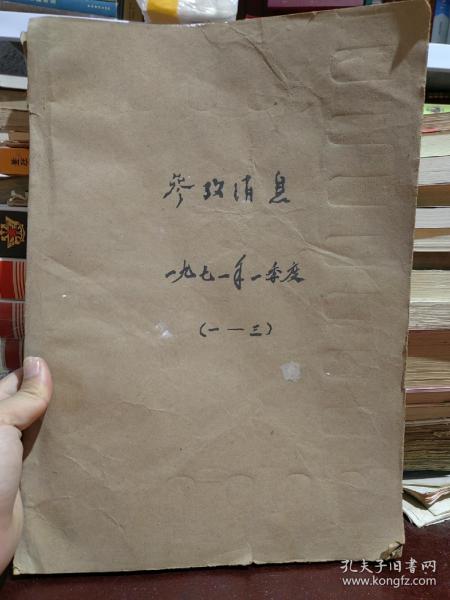 参攷消息
一九七一年一季度
(一—三)
孔夫子旧书网
www.kongfz.com